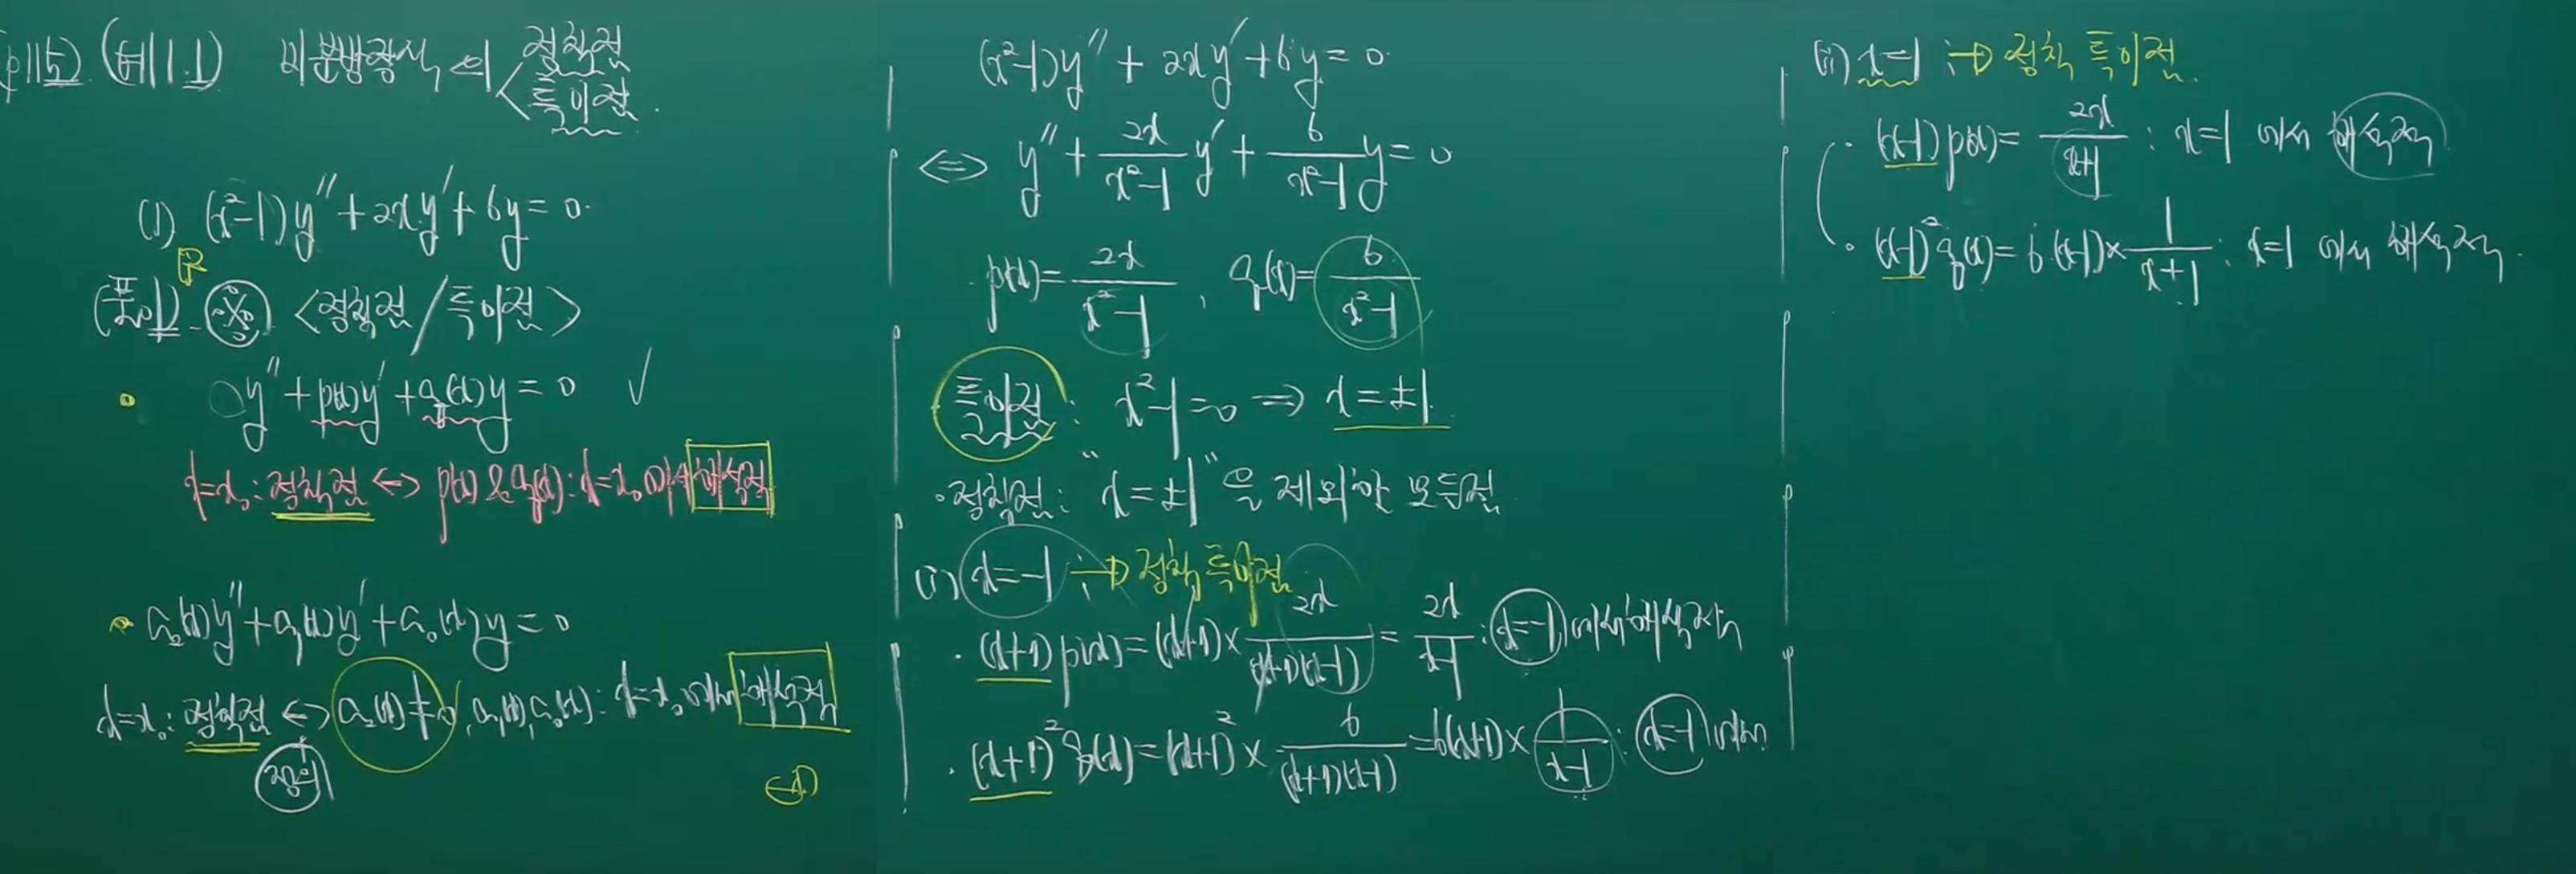 (p115) (예1.1) 미분방정식의 < 정칙점 특이점.
(1) (x²-1)y″ + 2xy′ + 6y = 0.
(풀이) ※ <정칙점/특이점>
y″ + p(x)y′ + q(x)y = 0 ✓
x=x₀ : 정칙점 ↔ p(x) & q(x) : x=x₀ 에서 해석적
a₂(x)y″ + a₁(x)y′ + a₀(x)y = 0
x=x₀ : 정칙점 ↔ a₂(x)≠0, a₁(x), a₀(x) : x=x₀ 에서 해석적
정의
(x²-1)y″ + 2xy′ + 6y = 0
⇔ y″ + 2x/(x²-1) y′ + 6/(x²-1) y = 0
p(x) = 2x/(x²-1), q(x) = 6/(x²-1)
특이점 : x²-1=0 ⇒ x = ±1
· 정칙점 : "x = ±1" 을 제외한 모든점
(i) x=-1 : → 정칙 특이점
· (x+1)p(x) = (x+1) × 2x/((x+1)(x-1)) = 2x/(x-1) : x=-1 에서 해석적
· (x+1)² q(x) = (x+1)² × 6/((x+1)(x-1)) = 6(x+1) × 1/(x-1) : x=-1 에서
(ii) x=1 : → 정칙 특이점.
· (x-1)p(x) = 2x/(x+1) : x=1 에서 해석적
· (x-1)² q(x) = 6·(x-1) × 1/(x+1) : x=1 에서 해석적.